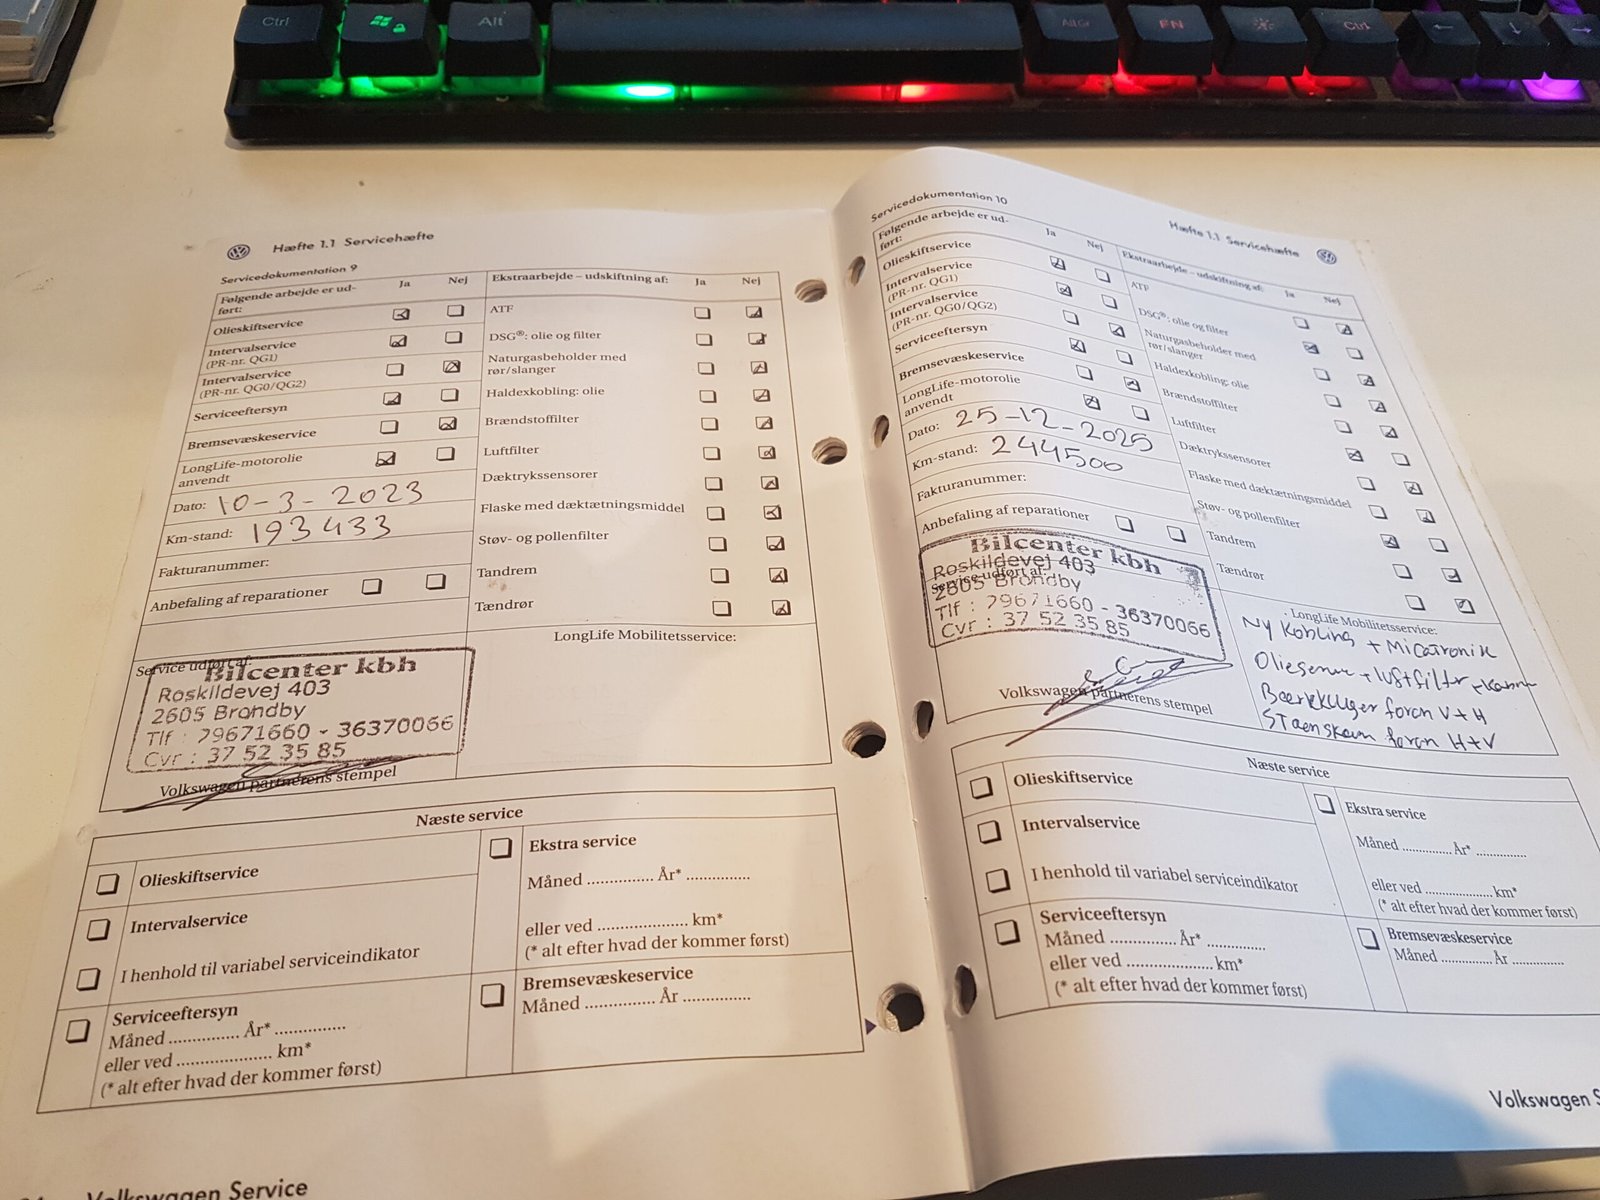 Ctrl
Alt
AltGr
FN
Ctrl
Hæfte 1.1 Servicehæfte
Servicedokumentation 9
Følgende arbejde er ud-
ført:
Ja
Nej
Olieskiftservice
Intervalservice
(PR-nr. QG1)
Intervalservice
(PR-nr. QG0/QG2)
Serviceeftersyn
Bremsevæskeservice
LongLife-motorolie
anvendt
Dato: 10-3-2023
Km-stand: 193433
Fakturanummer:
Anbefaling af reparationer
Ekstraarbejde – udskiftning af:
Ja
Nej
ATF
DSG®: olie og filter
Naturgasbeholder med
rør/slanger
Haldexkobling: olie
Brændstoffilter
Luftfilter
Dæktrykssensorer
Flaske med dæktætningsmiddel
Støv- og pollenfilter
Tandrem
Tændrør
LongLife Mobilitetsservice:
Service udført af:
Bilcenter kbh
Roskildevej 403
2605 Brøndby
Tlf : 29671660 - 36370066
Cvr : 37 52 35 85
Volkswagen partnerens stempel
Næste service
Olieskiftservice
Intervalservice
I henhold til variabel serviceindikator
Serviceeftersyn
Måned ............... År* ...............
eller ved .................... km*
(* alt efter hvad der kommer først)
Ekstra service
Måned .............. År* .............
eller ved ................... km*
(* alt efter hvad der kommer først)
Bremsevæskeservice
Måned .............. År ..............
Volkswagen Service
Servicedokumentation 10
Hæfte 1.1 Servicehæfte
Følgende arbejde er ud-
ført:
Ja
Nej
Olieskiftservice
Intervalservice
(PR-nr. QG1)
Intervalservice
(PR-nr. QG0/QG2)
Serviceeftersyn
Bremsevæskeservice
LongLife-motorolie
anvendt
Dato: 25-12-2025
Km-stand: 244500
Fakturanummer:
Anbefaling af reparationer
Ekstraarbejde – udskiftning af:
Ja
Nej
ATF
DSG®: olie og filter
Naturgasbeholder med
rør/slanger
Haldexkobling: olie
Brændstoffilter
Luftfilter
Dæktrykssensorer
Flaske med dæktætningsmiddel
Støv- og pollenfilter
Tandrem
Tændrør
Service udført af:
Bilcenter kbh
Roskildevej 403
2605 Brøndby
Tlf : 29671660 - 36370066
Cvr : 37 52 35 85
Volkswagen partnerens stempel
LongLife Mobilitetsservice:
Ny Kobling + Micatronik
+ luftfilter
foran V+H
foran H+V
Næste service
Olieskiftservice
Intervalservice
I henhold til variabel serviceindikator
Serviceeftersyn
Måned .............. År* .............
eller ved .................... km*
(* alt efter hvad der kommer først)
Ekstra service
Måned ............ År* ............
eller ved ................. km*
(* alt efter hvad der kommer først)
Bremsevæskeservice
Måned ............ År ............
Volkswagen